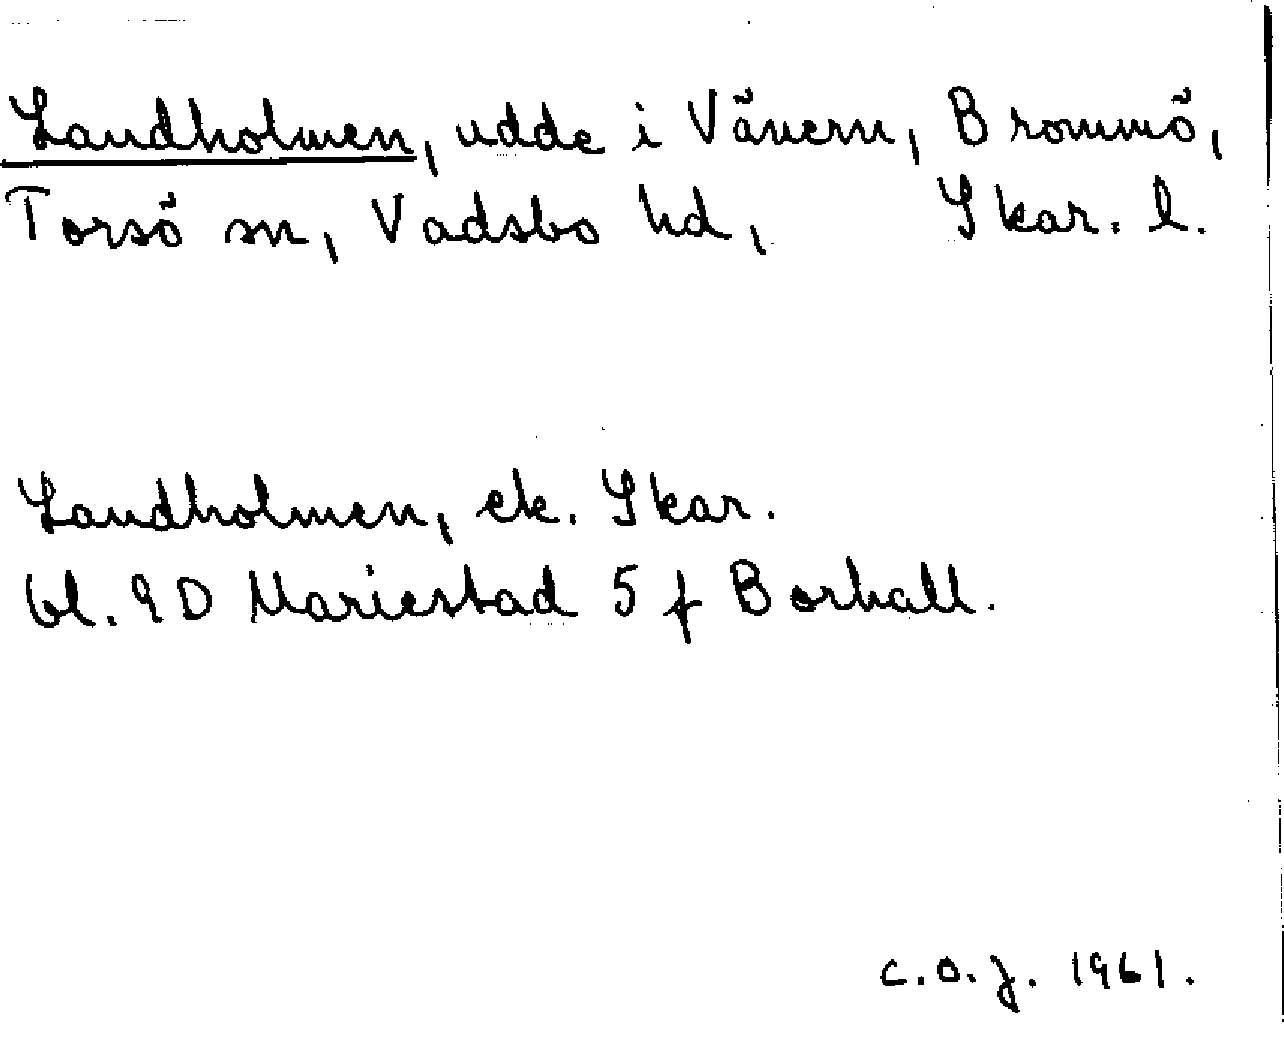 Sandholmen, udde i Vänern, Brommö,
Torsö sn, Vadsbo hd, Skar. l.
Sandholmen, ek. Skar.
bl. 9D Mariestad 5 f Borhall.
C.O.J. 1961.